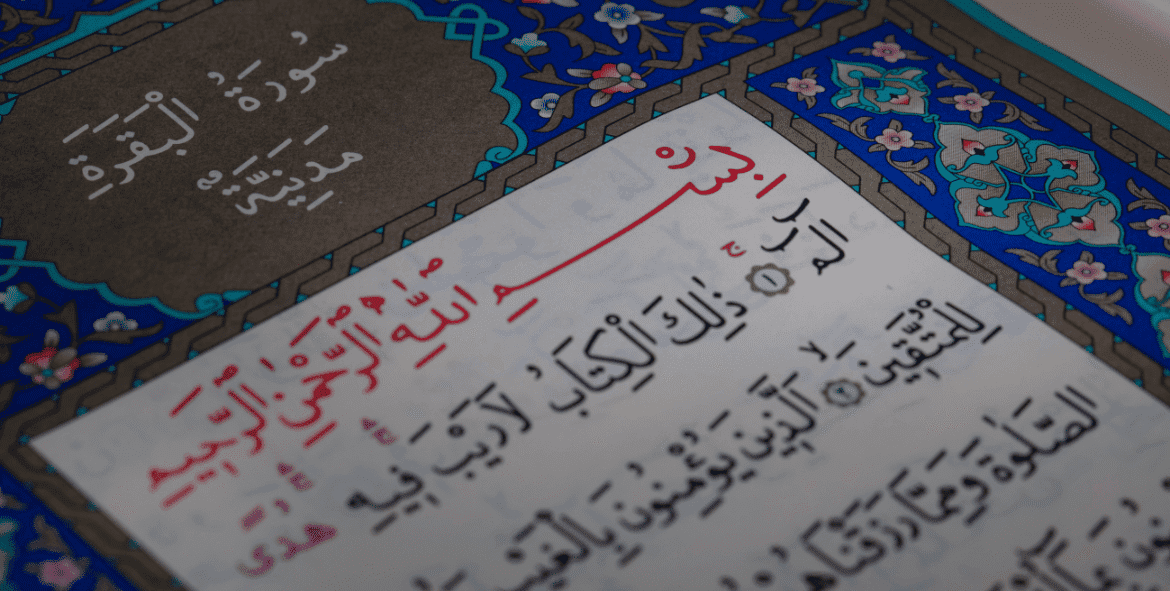 سُورَةُ الْبَقَرَةِ
مَدَنِيَّةٌ
بِسْمِ اللّٰهِ الرَّحْمٰنِ الرَّحِيمِ
الٓمٓ ۚ ﴿١﴾ ذٰلِكَ الْكِتَابُ لَا رَيْبَ فِيهِ هُدًى
لِلْمُتَّقِينَ ﴿٢﴾ اَلَّذِينَ يُؤْمِنُونَ بِالْغَيْبِ
الصَّلٰوةَ وَمِمَّا رَزَقْنَاهُمْ